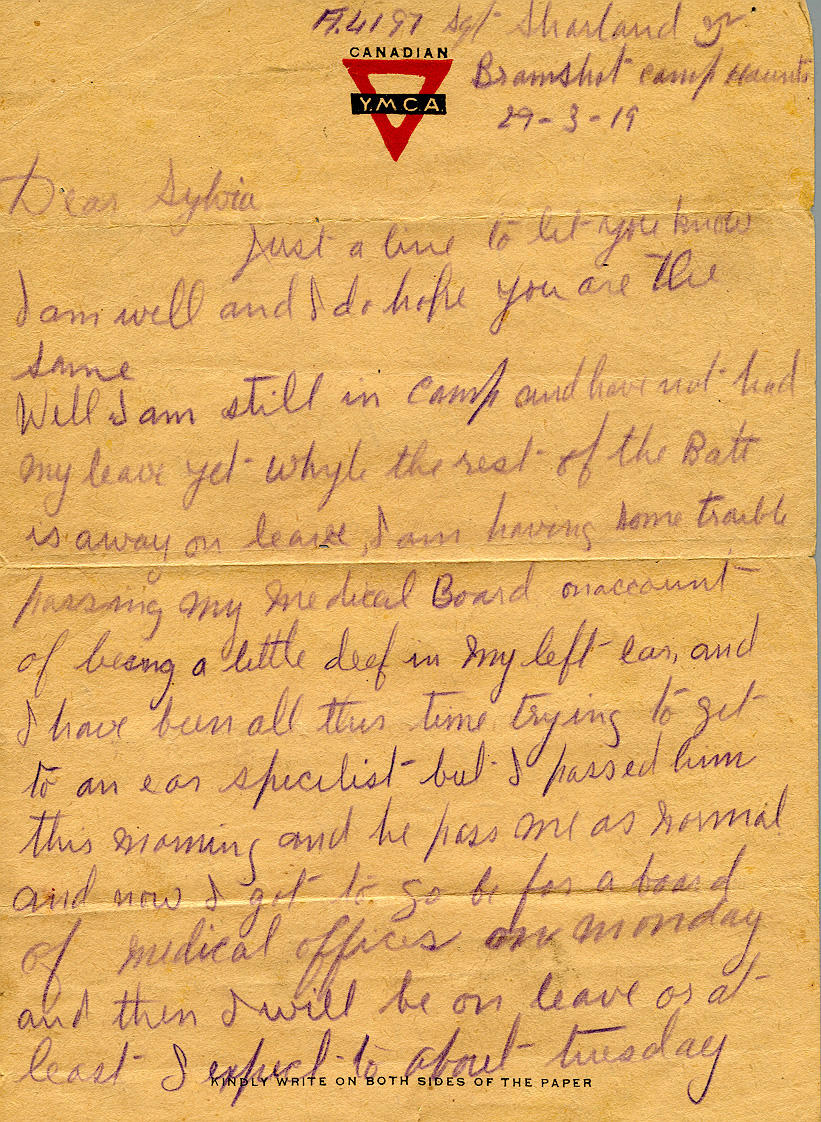 A.4197 Sgt Sharland
CANADIAN
Y.M.C.A.
Bramshot camp Haunts
29-3-19
Dear Sylvia
Just a line to let you know
I am well and I do hope you are the
same
Well I am still in camp and have not had
my leave yet whyle the rest of the Batt
is away on leave, I am having some trouble
passing my medical Board on account
of being a little deef in my left ear, and
I have been all this time trying to get
to an ear specilist but I passed him
this morning and he pass me as normal
and now I got to go be for a board
of medical offices on monday
and then I will be on leave or at
least I expect to about tuesday
KINDLY WRITE ON BOTH SIDES OF THE PAPER